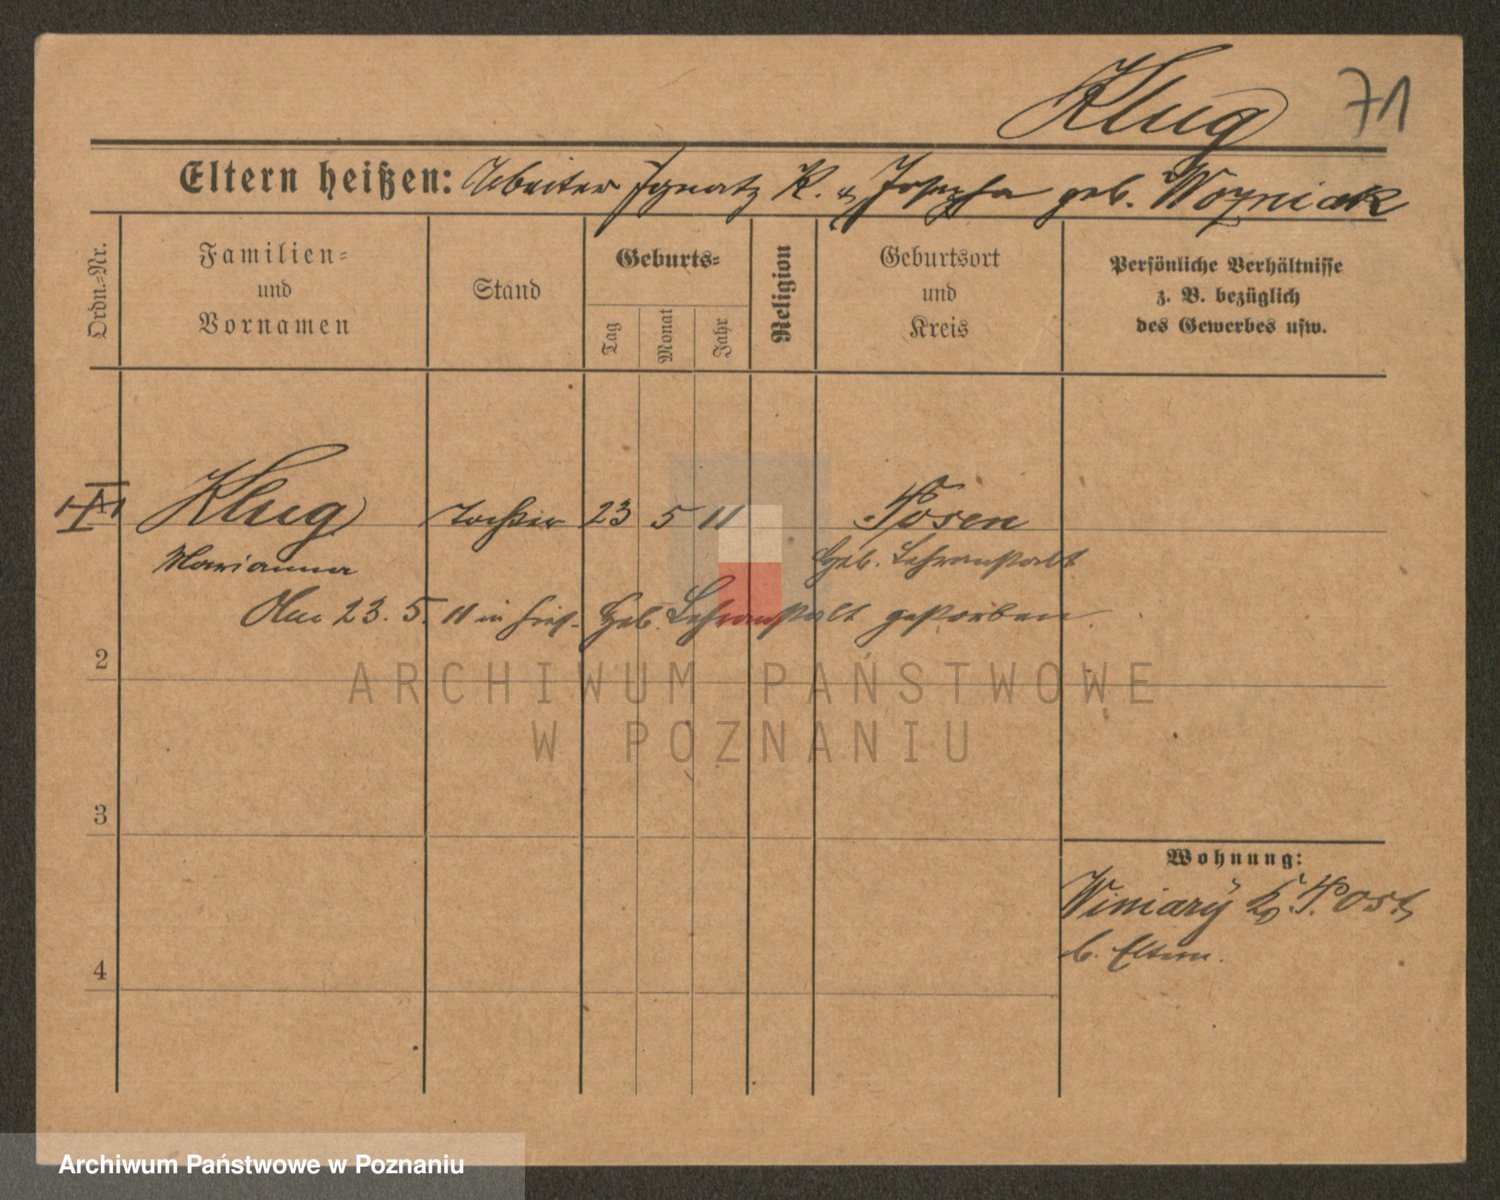 Klug
71
Eltern heißen: Arbeiter Ignatz K. u. Josepha geb. Wozniak
Ordn.=Nr.
Familien=
und
Vornamen
Stand
Geburts=
Tag
Monat
Jahr
Religion
Geburtsort
und
Kreis
Persönliche Verhältnisse
z. B. bezüglich
des Gewerbes usw.
Klug
Tochter
23
5
11
Posen
Marianna
Heb. Lehranstalt
Am 23. 5. 11 in hies. Heb. Lehranstalt gestorben.
2
ARCHIWUM PAŃSTWOWE
W POZNANIU
3
Wohnung:
Winiary Kr. P. Ost,
b. Eltern.
4
Archiwum Państwowe w Poznaniu